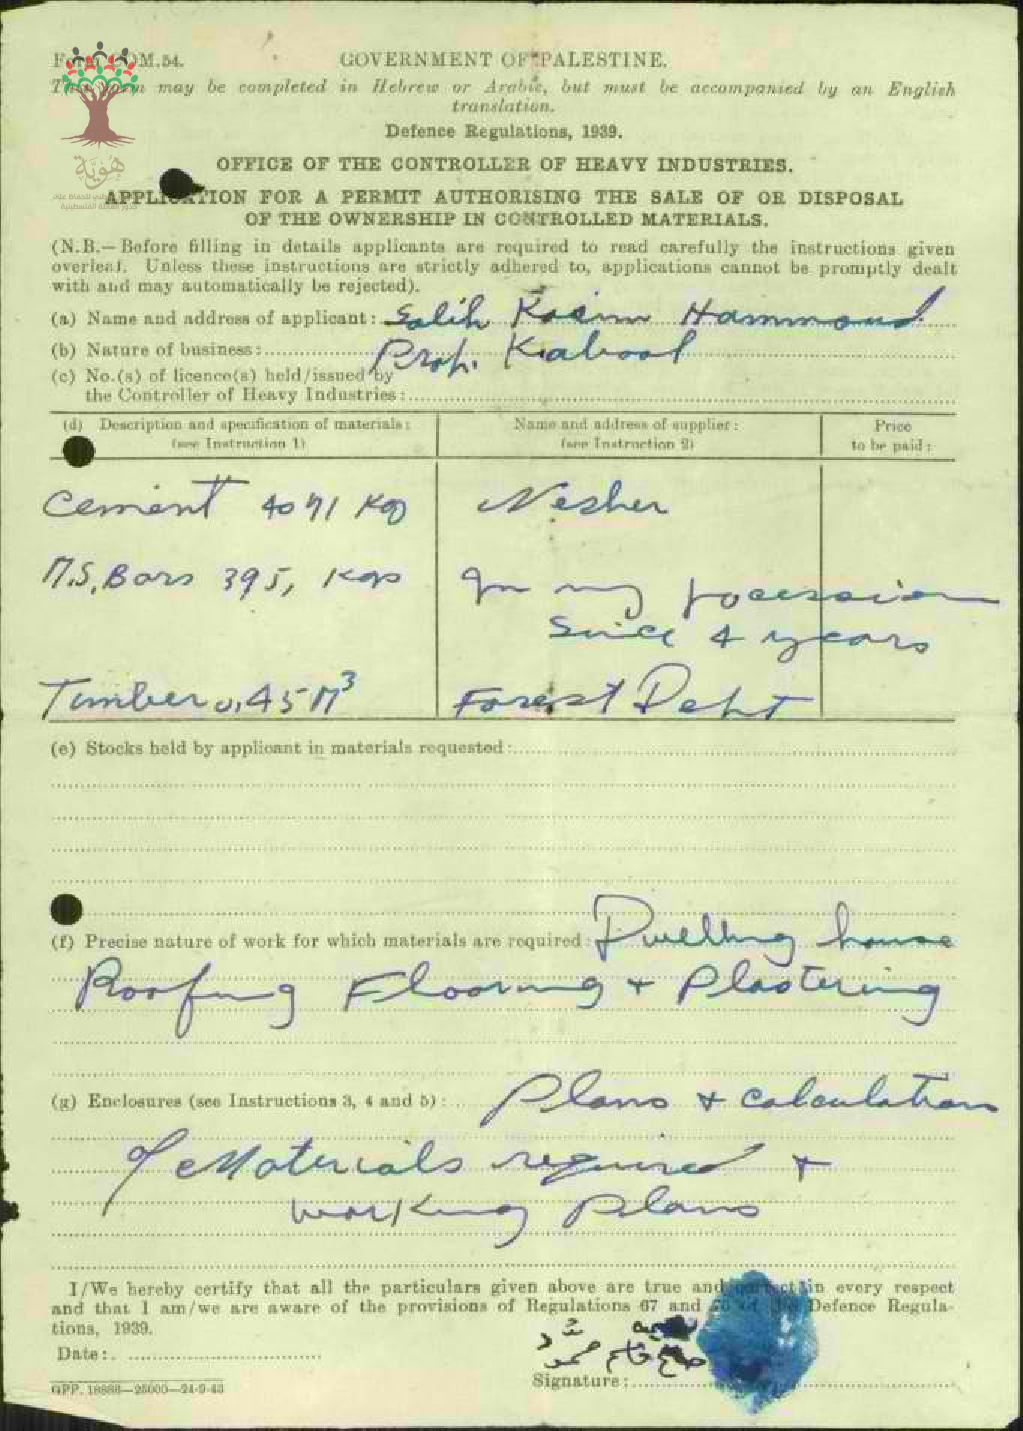 Form COM.54. GOVERNMENT OF PALESTINE.
This form may be completed in Hebrew or Arabic, but must be accompanied by an English
translation.
Defence Regulations, 1939.
هوية
OFFICE OF THE CONTROLLER OF HEAVY INDUSTRIES.
APPLICATION FOR A PERMIT AUTHORISING THE SALE OF OR DISPOSAL
OF THE OWNERSHIP IN CONTROLLED MATERIALS.
(N.B.—Before filling in details applicants are required to read carefully the instructions given
overleaf. Unless these instructions are strictly adhered to, applications cannot be promptly dealt
with and may automatically be rejected).
(a) Name and address of applicant: Salih Kasim Hammoud
(b) Nature of business: Prop. Kabool
(c) No.(s) of licence(s) held/issued by
the Controller of Heavy Industries:
(d) Description and specification of materials: Name and address of supplier: Price
(see Instruction 1) (see Instruction 2) to be paid:
Cement 4071 Kgs Nesher
M.S. Bars 395, Kgs In my pocession
since 4 years
Timber 0,45 M3 Forest Deht
(e) Stocks held by applicant in materials requested:
(f) Precise nature of work for which materials are required: Dwelling house
Roofing Flooring + Plastering
(g) Enclosures (see Instructions 3, 4 and 5): Plans + calculations
of Materials required +
working Plans
I/We hereby certify that all the particulars given above are true and correct in every respect
and that I am/we are aware of the provisions of Regulations 67 and of the Defence Regula-
tions, 1939.
Date:
صالح قاسم حمود
Signature:
GPP. 18888—25000—24-9-43